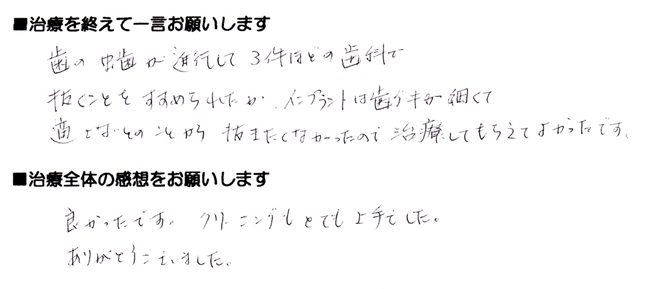 ■治療を終えて一言お願いします
歯の虫歯が進行して3件ほどの歯科で
抜くことをすすめられたが、インプラントは歯グキが細くて
適さずとのことから抜きたくなかったので治療してもらえてよかったです。
■治療全体の感想をお願いします
良かったです。クリーニングもとても上手でした。
ありがとうございました。